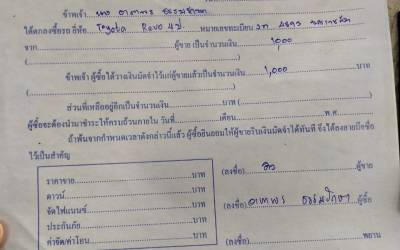 ข้าพเจ้า นาย อาภาพร ธรรมรักษา
ได้ตกลงซื้อรถ ยี่ห้อ Toyota Revo 4ป หมายเลขทะเบียน 4895
จาก ผู้ขาย เป็นจำนวนเงิน 1,000
ข้าพเจ้า ผู้ซื้อได้วางเงินมัดจำไว้แก่ผู้ขายแล้วเป็นจำนวนเงิน 1,000 บาท
ส่วนที่เหลืออยู่อีกเป็นจำนวนเงิน บาท (
ผู้ซื้อจะต้องนำมาชำระให้ครบถ้วนภายใน วันที่ เดือน พ.ศ.
ถ้าพ้นจากกำหนดเวลาดังกล่าวนี้แล้ว ผู้ซื้อยินยอมให้ผู้ขายริบเงินมัดจำได้ทันที จึงได้ลงลายมือชื่อ
ไว้เป็นสำคัญ
ราคาขาย บาท
ดาวน์ บาท
จัดไฟแนนซ์ บาท
ประกันภัย บาท
ค่าจัด/ค่าโอน บาท
(ลงชื่อ) ผู้ขาย
(ลงชื่อ) อาภาพร ธรรมรักษา ผู้ซื้อ
(ลงชื่อ) พยาน